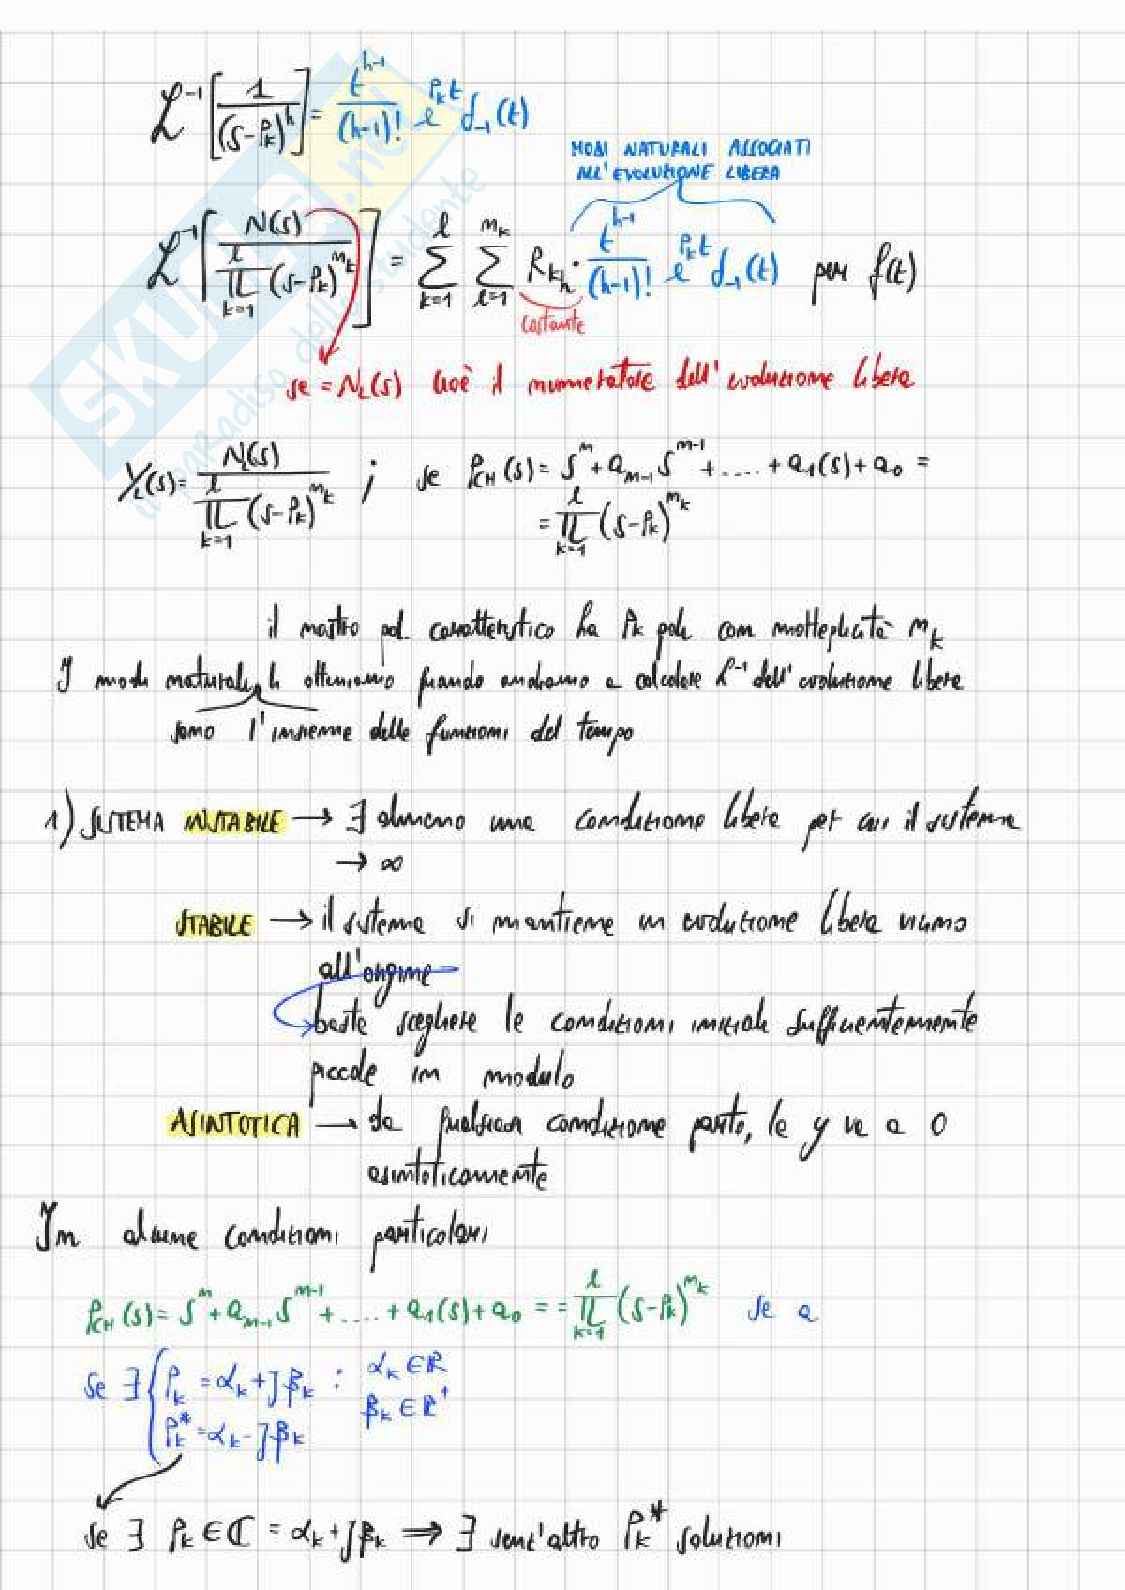 ℒ⁻¹[1/(s-p_k)^h] = t^(h-1)/(h-1)! e^(p_k t) δ₋₁(t)
MODI NATURALI ASSOCIATI
ALL'EVOLUZIONE LIBERA
ℒ⁻¹[N(s)/∏_{k=1}^{l} (s-p_k)^{m_k}] = ∑_{k=1}^{l} ∑_{l=1}^{m_k} R_{kh} · t^(h-1)/(h-1)! e^(p_k t) δ₋₁(t) per f(t)
costante
se = N_L(s) cioè il numeratore dell'evoluzione libera
Y_L(s) = N_L(s)/∏_{k=1}^{l} (s-p_k)^{m_k} ; se P_CH(s) = s^n + a_{n-1} s^{n-1} + .... + a₁(s) + a₀ =
= ∏_{k=1}^{l} (s-p_k)^{m_k}
il nostro pol. caratteristico ha p_k poli con molteplicità m_k
I modi naturali li otteniamo quando andiamo a calcolare ℒ⁻¹ dell'evoluzione libera
sono l'insieme delle funzioni del tempo
1) SISTEMA INSTABILE → ∃ almeno una condizione libera per cui il sistema
→ ∞
STABILE → il sistema si mantiene in evoluzione libera vicino
all'origine
basta scegliere le condizioni iniziali sufficientemente
piccole in modulo
ASINTOTICA → da qualsiasi condizione parto, la y va a 0
asintoticamente
In alcune condizioni particolari
P_CH(s) = s^n + a_{n-1} s^{n-1} + .... + a₁(s) + a₀ = = ∏_{k=1}^{l} (s-p_k)^{m_k} se a
se ∃ { p_k = α_k + jβ_k : α_k ∈ ℝ
p_k* = α_k - jβ_k β_k ∈ ℝ⁺
se ∃ p_k ∈ ℂ = α_k + jβ_k ⇒ ∃ senz'altro p_k* soluzioni